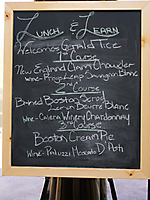 Lunch & Learn
Welcomes Gerald Tice
1st Course
New England Clam Chowder
Wine- Sauvignon Blanc
2nd Course
Baked Boston Scrod
Lemon Beurre Blanc
Wine- Calera Winery Chardonnay
3rd Course
Boston Cream Pie
Wine- Moscato D'Asti